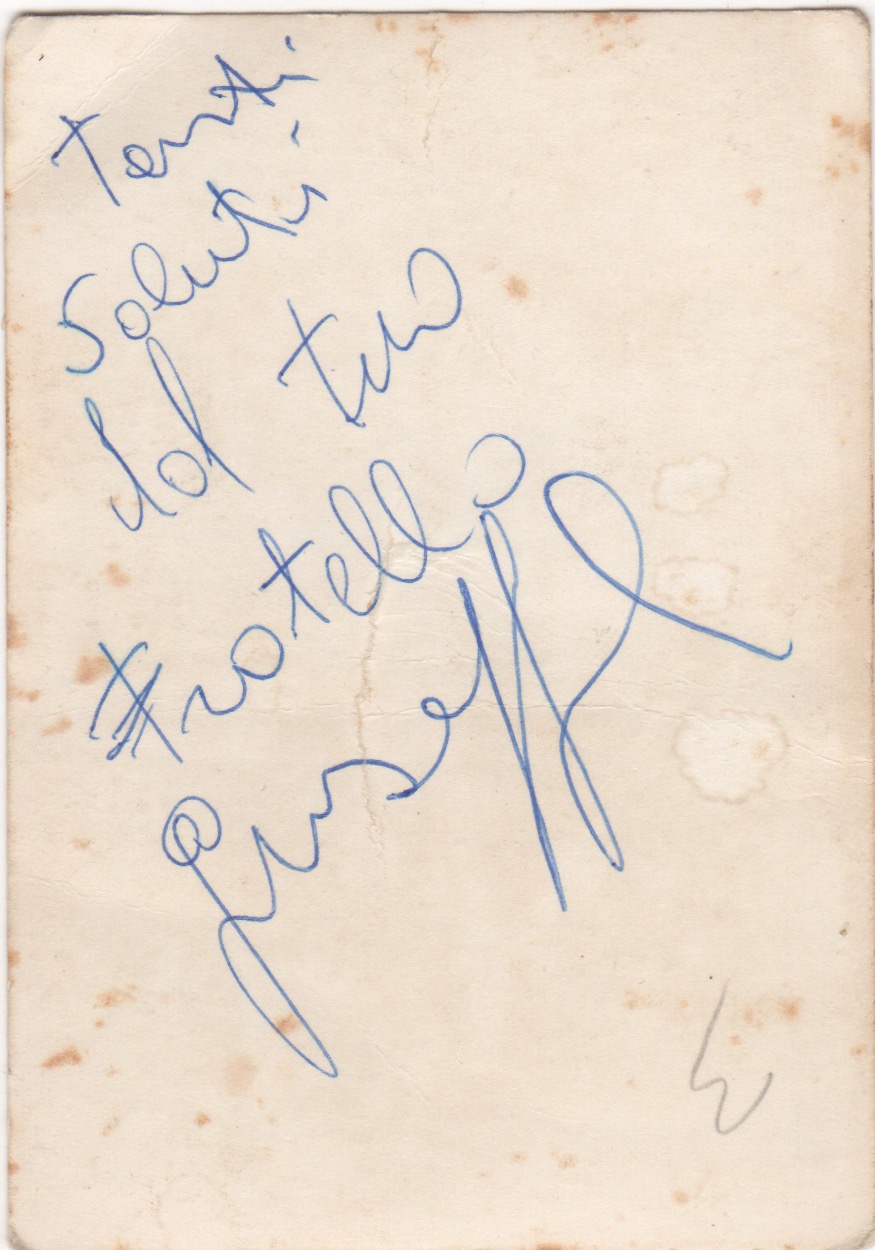 Tanti
Saluti
dal tuo
Fratello
Giuseppe